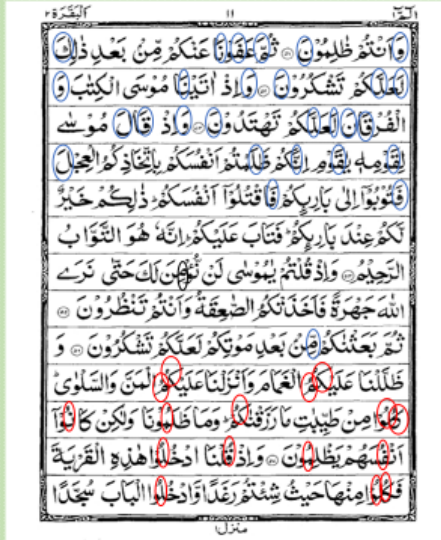 الٓمّٓ ١ ١١ اَلْبَقَرَة ٢
وَاَنْتُمْ ظٰلِمُوْنَ ۝٥١ ثُمَّ عَفَوْنَا عَنْكُمْ مِّنْ بَعْدِ ذٰلِكَ
لَعَلَّكُمْ تَشْكُرُوْنَ ۝٥٢ وَاِذْ اٰتَيْنَا مُوْسَى الْكِتٰبَ وَ
الْفُرْقَانَ لَعَلَّكُمْ تَهْتَدُوْنَ ۝٥٣ وَاِذْ قَالَ مُوْسٰى
لِقَوْمِهٖ يٰقَوْمِ اِنَّكُمْ ظَلَمْتُمْ اَنْفُسَكُمْ بِاتِّخَاذِكُمُ الْعِجْلَ
فَتُوْبُوْٓا اِلٰى بَارِئِكُمْ فَاقْتُلُوْٓا اَنْفُسَكُمْ ذٰلِكُمْ خَيْرٌ
لَّكُمْ عِنْدَ بَارِئِكُمْ فَتَابَ عَلَيْكُمْ اِنَّهٗ هُوَ التَّوَّابُ
الرَّحِيْمُ ۝٥٤ وَاِذْ قُلْتُمْ يٰمُوْسٰى لَنْ نُّؤْمِنَ لَكَ حَتّٰى نَرَى
اللّٰهَ جَهْرَةً فَاَخَذَتْكُمُ الصّٰعِقَةُ وَاَنْتُمْ تَنْظُرُوْنَ ۝٥٥
ثُمَّ بَعَثْنٰكُمْ مِّنْ بَعْدِ مَوْتِكُمْ لَعَلَّكُمْ تَشْكُرُوْنَ ۝٥٦ وَ
ظَلَّلْنَا عَلَيْكُمُ الْغَمَامَ وَاَنْزَلْنَا عَلَيْكُمُ الْمَنَّ وَالسَّلْوٰى
كُلُوْا مِنْ طَيِّبٰتِ مَا رَزَقْنٰكُمْ وَمَا ظَلَمُوْنَا وَلٰكِنْ كَانُوْٓا
اَنْفُسَهُمْ يَظْلِمُوْنَ ۝٥٧ وَاِذْ قُلْنَا ادْخُلُوْا هٰذِهِ الْقَرْيَةَ
فَكُلُوْا مِنْهَا حَيْثُ شِئْتُمْ رَغَدًا وَّادْخُلُوا الْبَابَ سُجَّدًا
منزل ١